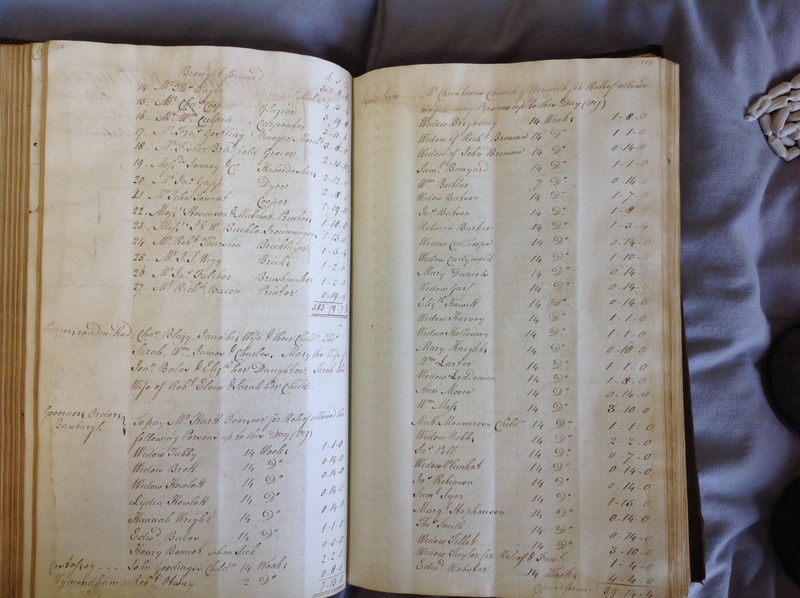 212
Brought forward
£ s d
14. Mr Thos
15. Mr Chas Cooper Glazier
16. Mr Wm Culpek Carpenter 3-19-8
17. Mr Fra: Gostling
18. Mr Fisher Grocer 3-8-0
19. Messrs &C Haberdashers 2-16-0
20. Mr Jas Dyer 2-12-0
21 Mr John Cooper 2-8-0
22. Messrs Stevenson & Matchett Printers 1-19-0
23. Messrs J & W Ironmongers 1-18-0
24. Mr Robt Thurston Bricklayer 1-13-0
25. Mr J. S. Wigg Bricks 1-3-4
26. Mr Jas Fulcher Brushmaker 1-2-0
27. Mr Richd Bacon Printer 1-2-0
0-19-9
385-19-7
Paupers readmitted Chas Blazy, Jane his Wife & their Childn
Sarah, Wm James & Charles. Mary the Wife of
Jona Bales & Elizth her Daughter, Sarah the
Wife of Robt Elvin & Sarah her Child.
Governors Orders
Bawburgh
To pay Mr Hart Overseer for Relief allowed the
following Persons up to this Day (Viz)
Widow Tubby 14 Weeks 1-1-0
Widow Brett 14 Do 0-14-0
Widow Howlett 14 Do 0-14-0
Lydia Howlett 14 Do 0-14-0
Hannah Wright 14 Do 0-14-0
Edwd Bales 14 Do 1-1-0
Henry Bennet when Sick 0-5-0
Costessy John Goodings Childn 14 Weeks 2-2-0
Wymondham Robt Otway 2 Do 0-8-0
7-13-0
213
Mr Church of Norwich for Relief allowed
following Persons up to this Day (Viz)
Widow 14 Weeks 1-8-0
Widow of Richd Browne 14 Do 1-1-0
Widow of John Browne 14 Do 0-14-0
Saml Banyard 14 Do 1-1-0
Wm Butler 7 Do 0-14-0
Widow Batson 14 Do 1-7-0
Jas Batson 14 Do 1-8
Rebecca Barber 14 Do 1-3-4
Widow Calthorpe 14 Do 0-14-0
Widow 14 Do 1-10-0
Mary Daniels 14 Do 0-14
Widow Garf 14 Do 0-14-0
Elizth Howitt 14 Do 0-14-0
Widow Harvey 14 Do 1-1-0
Widow Holloway 14 Do 1-1-0
Mary Knights 14 Do 0-18-0
Wm Larter 14 Do 1-1-0
Widow Liddamon 14 Do 1-8-0
Ann Moore 14 Do 0-14-0
Wm Mess 14 Do 3-10-0
Childn 14 Do 1-1-0
Widow Nobbs 14 Do 2-2-0
Jas Poll 14 Do 0-7-0
Widow Plunket 14 Do 0-14-0
Jas Robinson 14 Do 0-14-0
Saml Syer 14 Do 1-15-0
Margt Stephenson 14 Do 0-14-0
Thos Smith 14 Do 0-14-0
Widow Tillott 14 Do 3-10-0
Widow Taylor for Relief & 1-4-0
Edwd Webster 14 Weeks 4-4-0
Carried forward 39-14-4